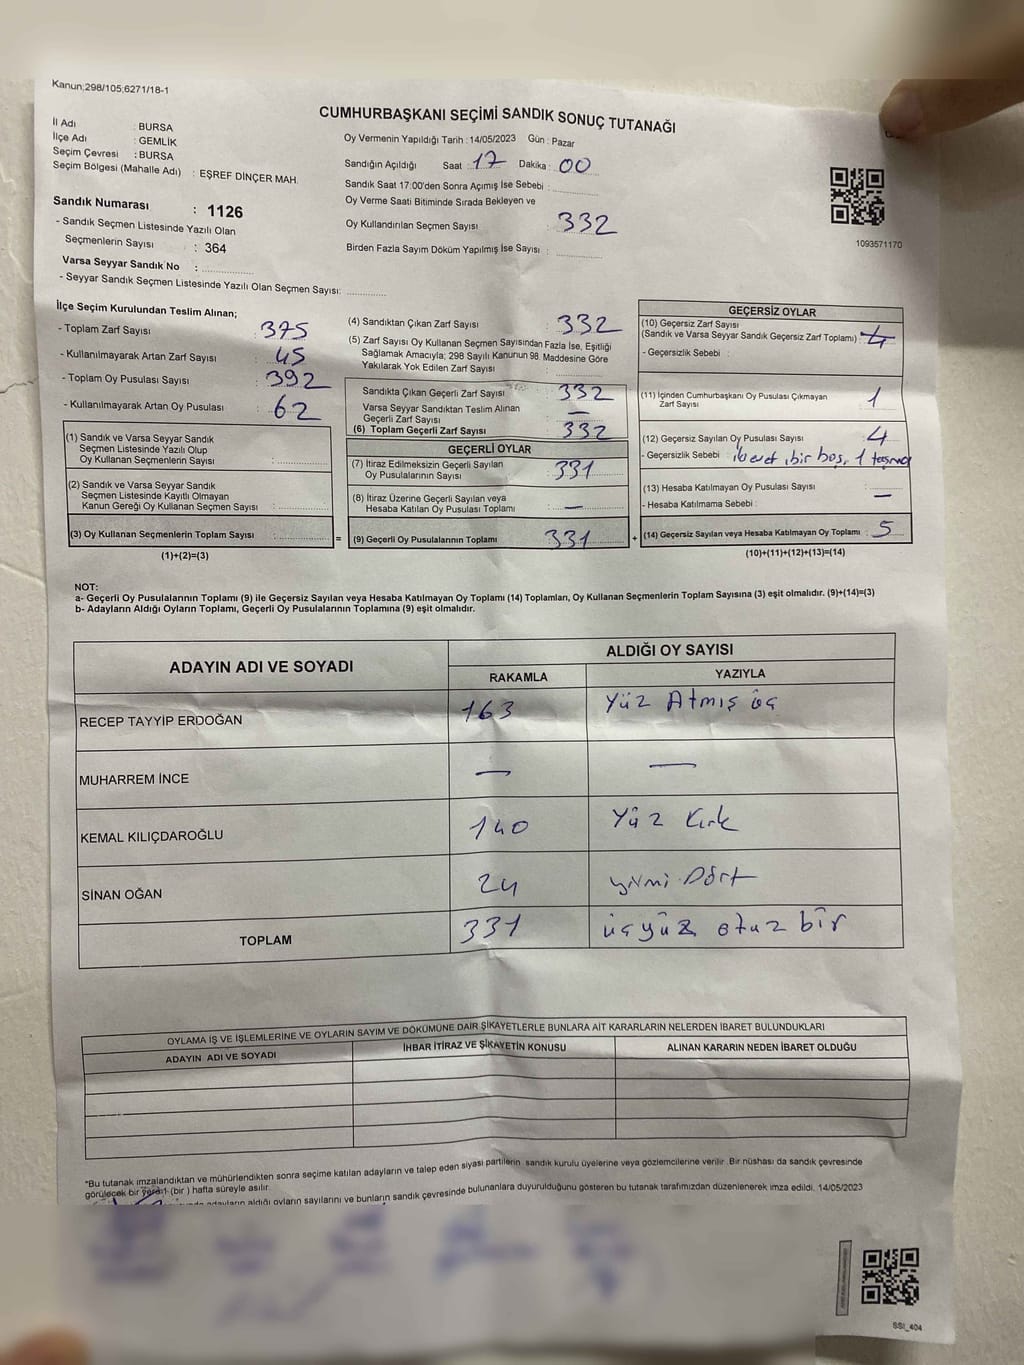 Kanun;298/105;6271/18-1
CUMHURBAŞKANI SEÇİMİ SANDIK SONUÇ TUTANAĞI
İl Adı : BURSA
İlçe Adı : GEMLİK
Seçim Çevresi : BURSA
Seçim Bölgesi (Mahalle Adı) : EŞREF DİNÇER MAH.
Sandık Numarası : 1126
- Sandık Seçmen Listesinde Yazılı Olan
Seçmenlerin Sayısı : 364
Varsa Seyyar Sandık No :
- Seyyar Sandık Seçmen Listesinde Yazılı Olan Seçmen Sayısı:
Oy Vermenin Yapıldığı Tarih :14/05/2023 Gün : Pazar
Sandığın Açıldığı Saat : 17 Dakika : 00
Sandık Saat 17:00'den Sonra Açımış İse Sebebi :
Oy Verme Saati Bitiminde Sırada Bekleyen ve
Oy Kullandırılan Seçmen Sayısı : 332
Birden Fazla Sayım Döküm Yapılmış İse Sayısı :
1093571170
İlçe Seçim Kurulundan Teslim Alınan;
- Toplam Zarf Sayısı : 375
- Kullanılmayarak Artan Zarf Sayısı : 45
- Toplam Oy Pusulası Sayısı : 392
- Kullanılmayarak Artan Oy Pusulası : 62
(1) Sandık ve Varsa Seyyar Sandık
Seçmen Listesinde Yazılı Olup
Oy Kullanan Seçmenlerin Sayısı :
(2) Sandık ve Varsa Seyyar Sandık
Seçmen Listesinde Kayıtlı Olmayan
Kanun Gereği Oy Kullanan Seçmen Sayısı :
(3) Oy Kullanan Seçmenlerin Toplam Sayısı :
(1)+(2)=(3)
=
(4) Sandıktan Çıkan Zarf Sayısı : 332
(5) Zarf Sayısı Oy Kullanan Seçmen Sayısından Fazla İse, Eşitliği
Sağlamak Amacıyla; 298 Sayılı Kanunun 98. Maddesine Göre
Yakılarak Yok Edilen Zarf Sayısı :
Sandıkta Çıkan Geçerli Zarf Sayısı : 332
Varsa Seyyar Sandıktan Teslim Alınan
Geçerli Zarf Sayısı : —
(6) Toplam Geçerli Zarf Sayısı : 332
GEÇERLİ OYLAR
(7) İtiraz Edilmeksizin Geçerli Sayılan
Oy Pusulalarının Sayısı : 331
(8) İtiraz Üzerine Geçerli Sayılan veya
Hesaba Katılan Oy Pusulası Toplamı : —
(9) Geçerli Oy Pusulalarının Toplamı : 331
+
GEÇERSİZ OYLAR
(10) Geçersiz Zarf Sayısı
(Sandık ve Varsa Seyyar Sandık Geçersiz Zarf Toplamı) : 4
- Geçersizlik Sebebi :
(11) İçinden Cumhurbaşkanı Oy Pusulası Çıkmayan
Zarf Sayısı : 1
(12) Geçersiz Sayılan Oy Pusulası Sayısı : 4
- Geçersizlik Sebebi : bir boş, 1
(13) Hesaba Katılmayan Oy Pusulası Sayısı : —
- Hesaba Katılmama Sebebi :
(14) Geçersiz Sayılan veya Hesaba Katılmayan Oy Toplamı : 5
(10)+(11)+(12)+(13)=(14)
NOT:
a- Geçerli Oy Pusulalarının Toplamı (9) ile Geçersiz Sayılan veya Hesaba Katılmayan Oy Toplamı (14) Toplamları, Oy Kullanan Seçmenlerin Toplam Sayısına (3) eşit olmalıdır. (9)+(14)=(3)
b- Adayların Aldığı Oyların Toplamı, Geçerli Oy Pusulalarının Toplamına (9) eşit olmalıdır.
ADAYIN ADI VE SOYADI
ALDIĞI OY SAYISI
RAKAMLA YAZIYLA
RECEP TAYYİP ERDOĞAN 163 Yüz Atmış üç
MUHARREM İNCE — —
KEMAL KILIÇDAROĞLU 140 Yüz Kırk
SİNAN OĞAN 24 yirmi Dört
TOPLAM 331 üçyüz otuz bir
OYLAMA İŞ VE İŞLEMLERİNE VE OYLARIN SAYIM VE DÖKÜMÜNE DAİR ŞİKAYETLERLE BUNLARA AİT KARARLARIN NELERDEN İBARET BULUNDUKLARI
ADAYIN ADI VE SOYADI İHBAR İTİRAZ VE ŞİKAYETİN KONUSU ALINAN KARARIN NEDEN İBARET OLDUĞU
*Bu tutanak imzalandıktan ve mühürlendikten sonra seçime katılan adayların ve talep eden siyasi partilerin sandık kurulu üyelerine veya gözlemcilerine verilir. Bir nüshası da sandık çevresinde
görülecek bir yere 1 (bir ) hafta süreyle asılır.
adayların aldığı oyların sayılarını ve bunların sandık çevresinde bulunanlara duyurulduğunu gösteren bu tutanak tarafımızdan düzenlenerek imza edildi. 14/05/2023
SSİ_404